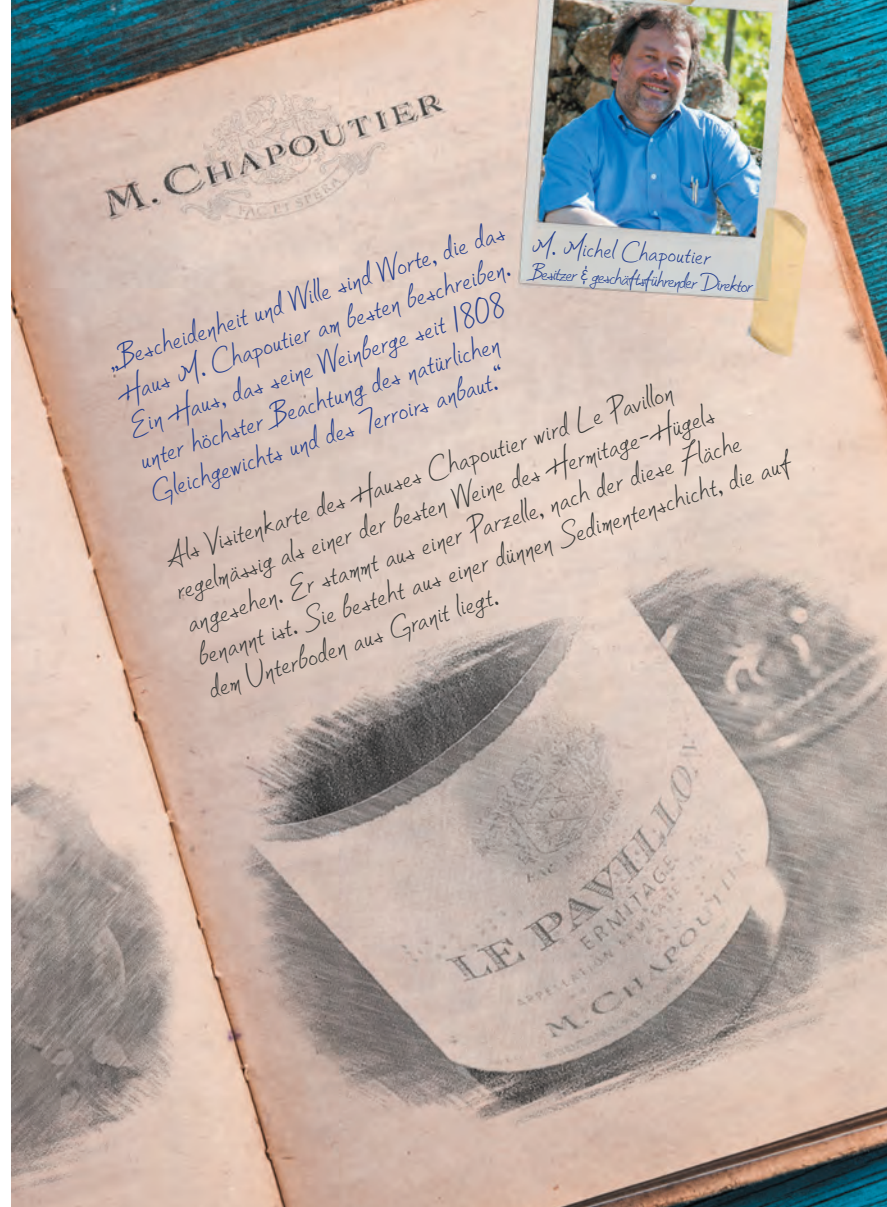 M. CHAPOUTIER
FAC ET SPERA
M. Michel Chapoutier
Besitzer & geschäftsführender Direktor
„Bescheidenheit und Wille sind Worte, die das
Haus M. Chapoutier am besten beschreiben.
Ein Haus, das seine Weinberge seit 1808
unter höchster Beachtung des natürlichen
Gleichgewichts und des Terroirs anbaut.“
Als Visitenkarte des Hauses Chapoutier wird Le Pavillon
regelmässig als einer der besten Weine des Hermitage-Hügels
angesehen. Er stammt aus einer Parzelle, nach der diese Fläche
benannt ist. Sie besteht aus einer dünnen Sedimentenschicht, die auf
dem Unterboden aus Granit liegt.
LE PAVILLON
ERMITAGE
APPELLATION ERMITAGE
M. CHAPOUTIER